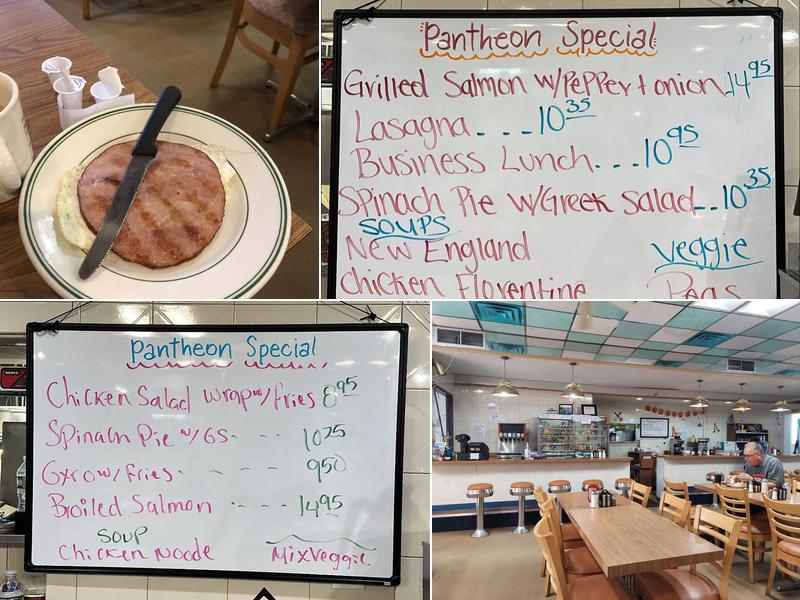 Pantheon Special
Grilled Salmon w/PePPer + onion 14 95
Lasagna . . . 10 35
Business Lunch . . . 10 95
Spinach Pie w/Greek Salad . . 10 35
SOUPS
New England
veggie
Chicken Florentine
Peas
Pantheon Special
Chicken Salad wrap w/ fries 8 95
Spinach Pie w/ GS - - - - 10 25
Gyro w/ fries - - - - 9 50
Broiled Salmon - - - - 14 95
SOUP
Chicken Noode
MixVeggie